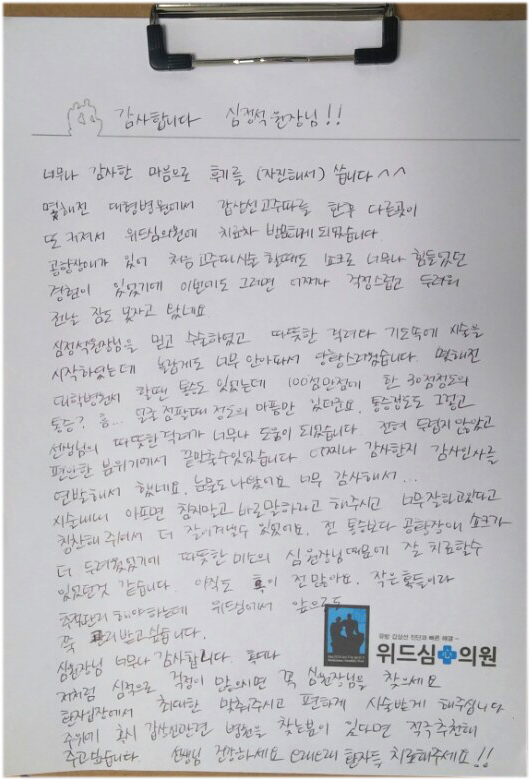 감사합니다 심정석 원장님!!
너무나 감사한 마음으로 후기를 (자진해서) 씁니다 ^^
몇해전 대형병원에서 갑상선고주파를 한후 다른곳이
또 커져서 위드심의원에 치료차 방문하게 되었습니다
공황장애가 있어 처음 고주파시술 할때도 쇼크로 너무나 힘들었던
경험이 있었기에 이번에도 그러면 어쩌나 걱정스럽고 두려워
전날 잠도 못자고 왔네요
심정석원장님을 믿고 수술하였고 따뜻한 격려와 기도속에 시술을
시작하였는데 놀랍게도 너무 안아파서 당황스러웠습니다. 몇해전
대학병원서 할땐 통증도 있었는데 100점만점에 한 30점정도의
통증? 흠... 얼굴 점팔때 정도의 아픔만 있더군요. 통증정도도 그렇고
선생님의 따뜻한격려가 너무나 도움이 되었습니다 전혀 두렵지 않았고
편안한 분위기에서 끝맞출수있었습니다 어찌나 감사한지 감사인사를
연발해서 했네요. 눈물도 나왔어요 너무 감사해서...
시술내내 아프면 참지말고 바로말하라고 해주시고 너무잘하고있다고
칭찬해 주어서 더 잘이겨낼수 있었어요. 전 통증보다 공황장애 쇼크가
더 두려웠었기에 따뜻한 미소의 심원장님때문에 잘 치료할수
있었던것 같습니다. 아직도 혹이 전 많아요. 작은 혹들이라
추적관리 해야하는데 위드심에서 앞으로도
쭉 받고싶습니다.
심원장님 너무나 감사합니다.
저처럼 심적으로 걱정이 많으시면 꼭 심원장님을 찾으세요
환자입장에서 최대한 맞춰주시고 편하게 시술받게 해주십니다
주위에 혹시 갑상선관련 병원을 찾는분이 있다면 적극추천해
주고싶습니다 선생님 건강하세요 오래오래 환자들 치료해주세요!!
유방 갑상선 진단과 빠른 해결
위드심의원